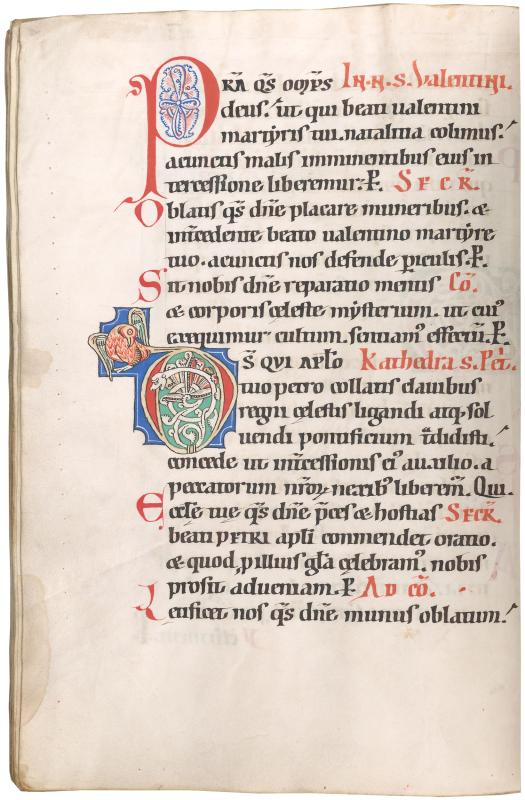 PRÆ qs om̅ps In. n. s. Valentini.
deus. ut qui beati ualentini
martyris tui natalitia colimus.
a cunctis malis imminentibus eius in
tercessione liberemur. P. SECR̅.
Oblatis qs dn̅e placare muneribus. &
int̅cedente beato ualentino martyre
tuo. a cunctis nos defende p̲iculis. P.
Sit nobis dn̅e reparatio mentis Co̅.
& corporis celeste mysterium. ut cui᾽
exequimur cultum. sentiam᾽ effectu̅. P.
DS QUI APL̅O Kathedra s. Pet̅.
tuo petro collatis clauibus
regni celestis ligandi atq; sol
uendi pontificium t̅didisti.
concede ut int̅cessionis ei᾽ auxilio. a
peccatorum nr̅oꝝ nexib᾽ liberem̅. Qui.
Eccl̅e tue qs dn̅e p̅ces & hostias SECR̅.
beati PETRI apl̅i commendet oratio.
& quod p illius gl̅a celebram᾽. nobis
prosit ad ueniam. P. AD CO̅.
Letificet nos qs dn̅e munus oblatum.